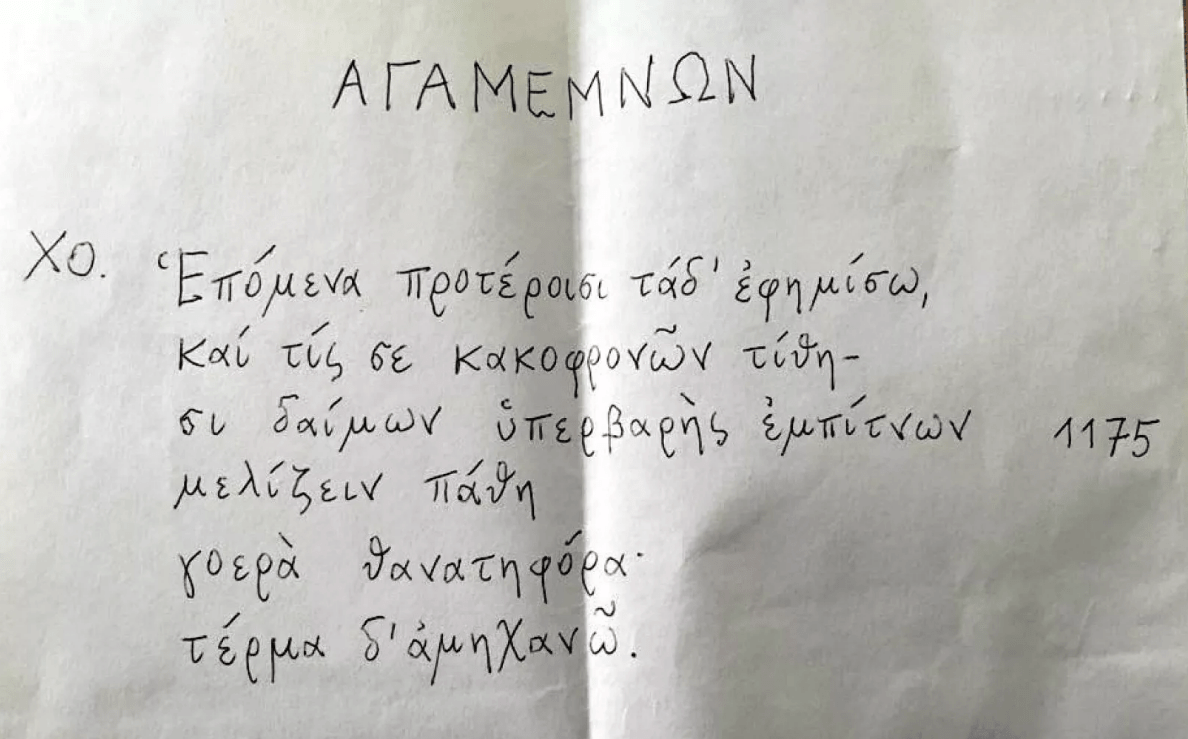 ΑΓΑΜΕΜΝΩΝ
ΧΟ. Ἑπόμενα προτέροισι τάδ' ἐφημίσω,
καί τίς σε κακοφρονῶν τίθη-
σι δαίμων ὑπερβαρὴς ἐμπίτνων 1175
μελίζειν πάθη
γοερὰ θανατηφόρα·
τέρμα δ' ἀμηχανῶ.